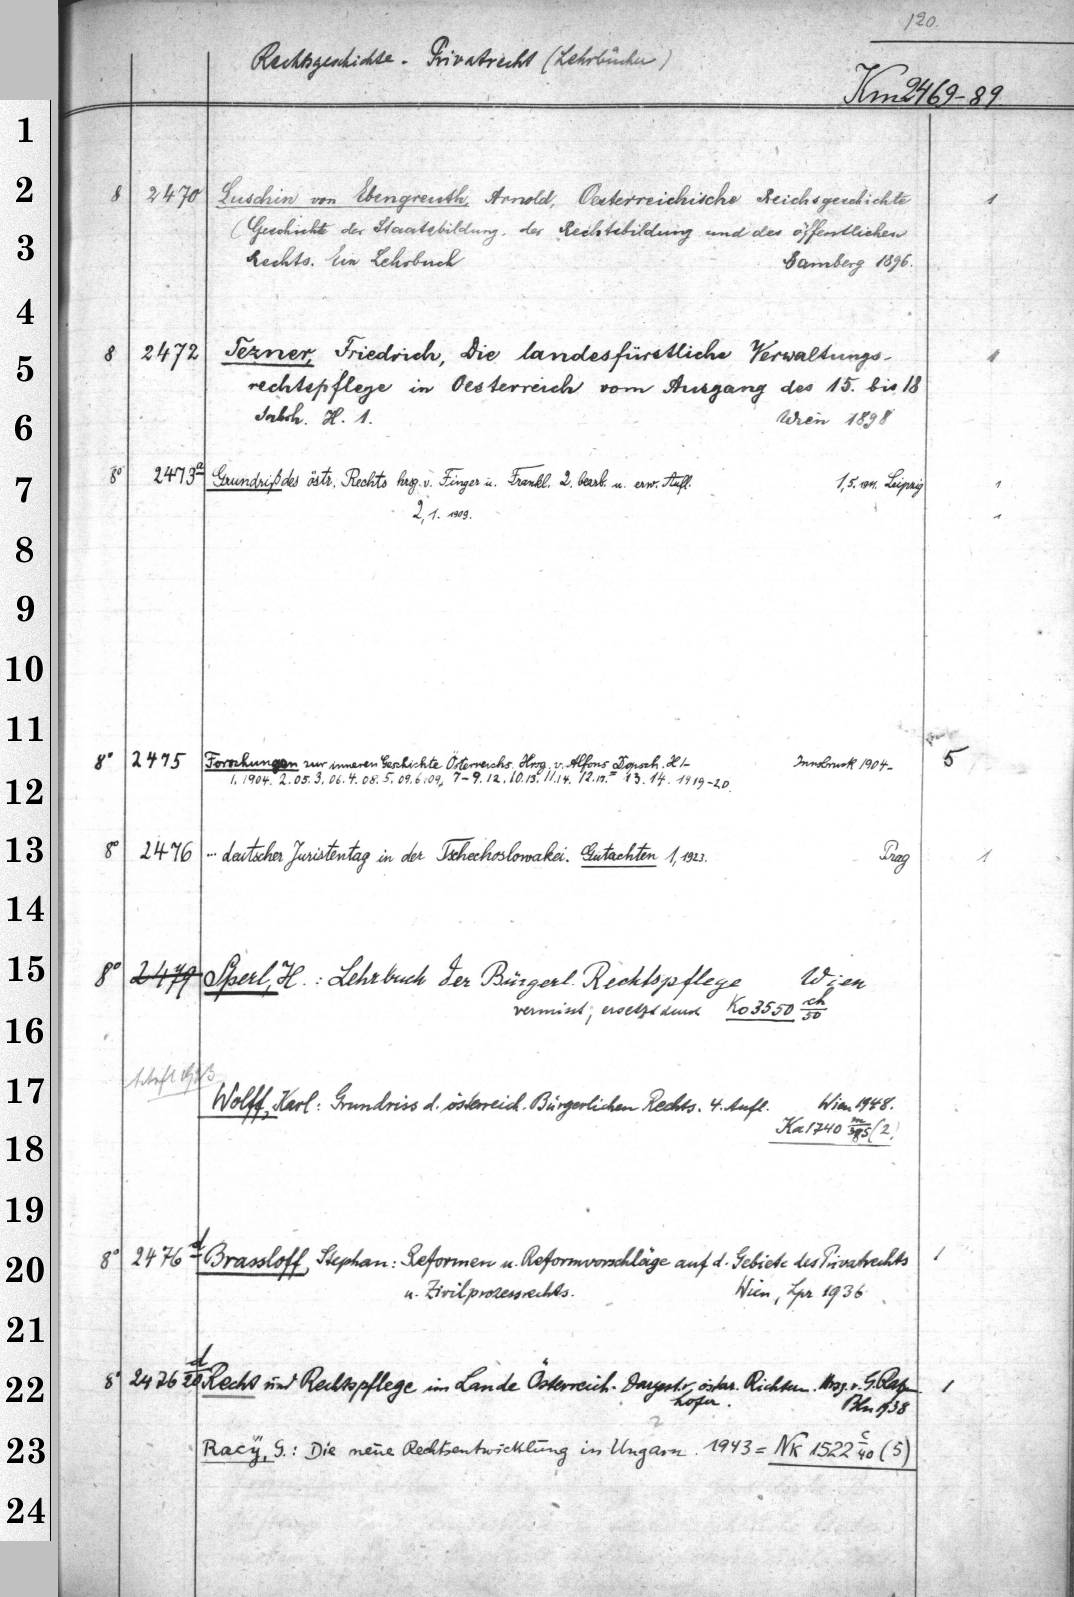 120.
Rechtsgeschichte. Privatrecht (Lehrbücher)
Km 2469-89
8 2470 Luschin von Ebengreuth, Arnold, Oesterreichische Reichsgeschichte 1
(Geschichte der Staatsbildung, der Rechtsbildung und des öffentlichen
Rechts. Ein Lehrbuch Bamberg 1896.
8 2472 Tezner, Friedrich, Die landesfürstliche Verwaltungs- 1
rechtspflege in Oesterreich vom Ausgang des 15. bis 18
Jahrh. H. 1. Wien 1898
8° 2473a Grundriß des östr. Rechts hrsg. v. Finger u. Frankl. 2. bearb. u. erw. Aufl. 1,5. Leipzig 1
2,1. 1909. 1
8° 2475 Forschungen zur inneren Geschichte Österreichs. Hrsg. v. Alfons Dopsch. H 1- Innsbruck 1904- 5
1. 1904. 2. 05. 3. 06. 4. 08. 5. 09. 6. 09. 7-9. 12. 10. 13. 11. 14. 12. 17. = 13. 14. 1919-20.
8° 2476 ... deutscher Juristentag in der Tschechoslowakei. Gutachten 1, 1923. Prag 1
8° 2479 Sperl, H. : Lehrbuch der Bürgerl. Rechtspflege Wien
vermisst; ersetzt durch Ko 3550 ch/50
Wolff, Karl: Grundriss d. österreich. Bürgerlichen Rechts. 4. Aufl. Wien 1948.
Ka 1740 m/385 (2)
8° 2476 d Brassloff, Stephan: Reformen u. Reformvorschläge auf d. Gebiete des Privatrechts 1
u. Zivilprozessrechts. Wien, Lpz 1936
8° 2476 d/20 Recht und Rechtspflege im Lande Österreich. Dargest. v. östar. Richtern. Hrsg. v. G. 1
Bln 1938
Racÿ, G.: Die neue Rechtsentwicklung in Ungarn. 1943 = Nk 1522 c/40 (5)